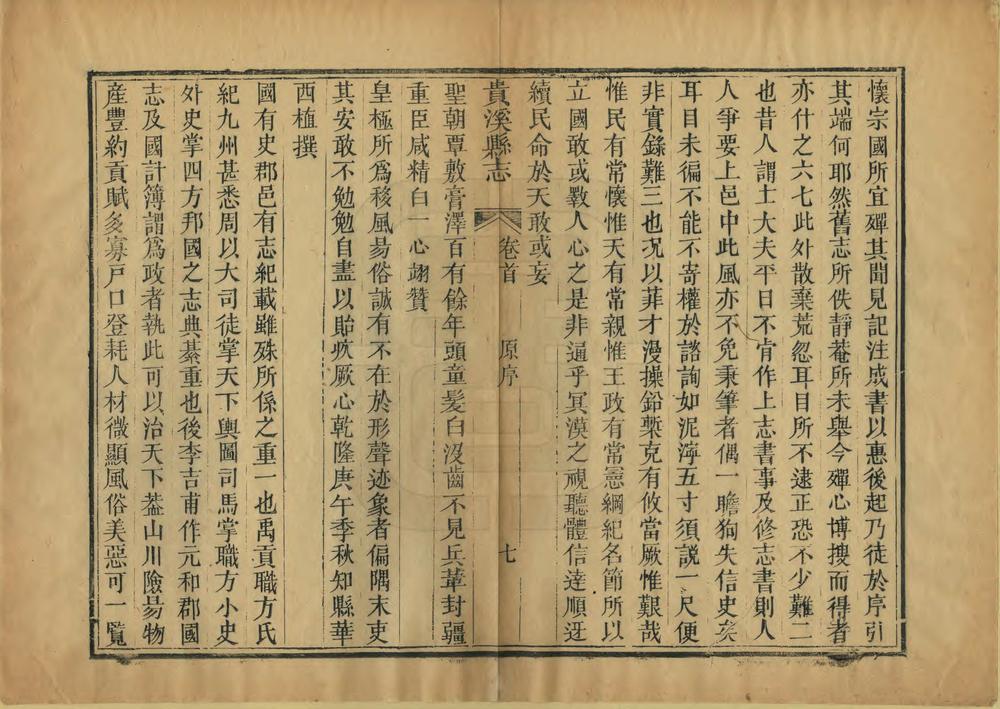 懷宗國所宜殫其聞見記注成書以惠後起乃徒於序引
其端何耶然舊志所佚靜菴所未舉今殫心博搜而得者
亦什之六七此外散棄荒忽耳目所不逮正恐不少難二
也昔人謂士大夫平日不肯作上志書事及修志書則人
人爭要上邑中此風亦不免秉筆者偶一瞻狥失信史矣
耳目未徧不能不寄權於諮詢如泥濘五寸須説一尺便
非實錄難三也况以菲才漫操鉛槧克有攸當厥惟艱哉
惟民有常懷惟天有常親惟王政有常憲綱紀名節所以
立國敢或斁人心之是非通乎冥漠之視聽體信達順迓
續民命於天敢或妄
貴溪縣志 卷首 原序 七
聖朝覃敷膏澤百有餘年頭童髮白沒齒不見兵革封疆
重臣咸精白一心翊贊
皇極所爲移風易俗誠有不在於形聲迹象者偏隅末吏
其安敢不勉勉自盡以貽疚厥心乾隆庚午季秋知縣華
西植撰
國有史郡邑有志紀載雖殊所係之重一也禹貢職方氏
紀九州甚悉周以大司徒掌天下輿圖司馬掌職方小史
外史掌四方邦國之志典綦重也後李吉甫作元和郡國
志及國計簿謂爲政者執此可以治天下葢山川險易物
産豐約貢賦多寡戸口登耗人材微顯風俗美惡可一覽